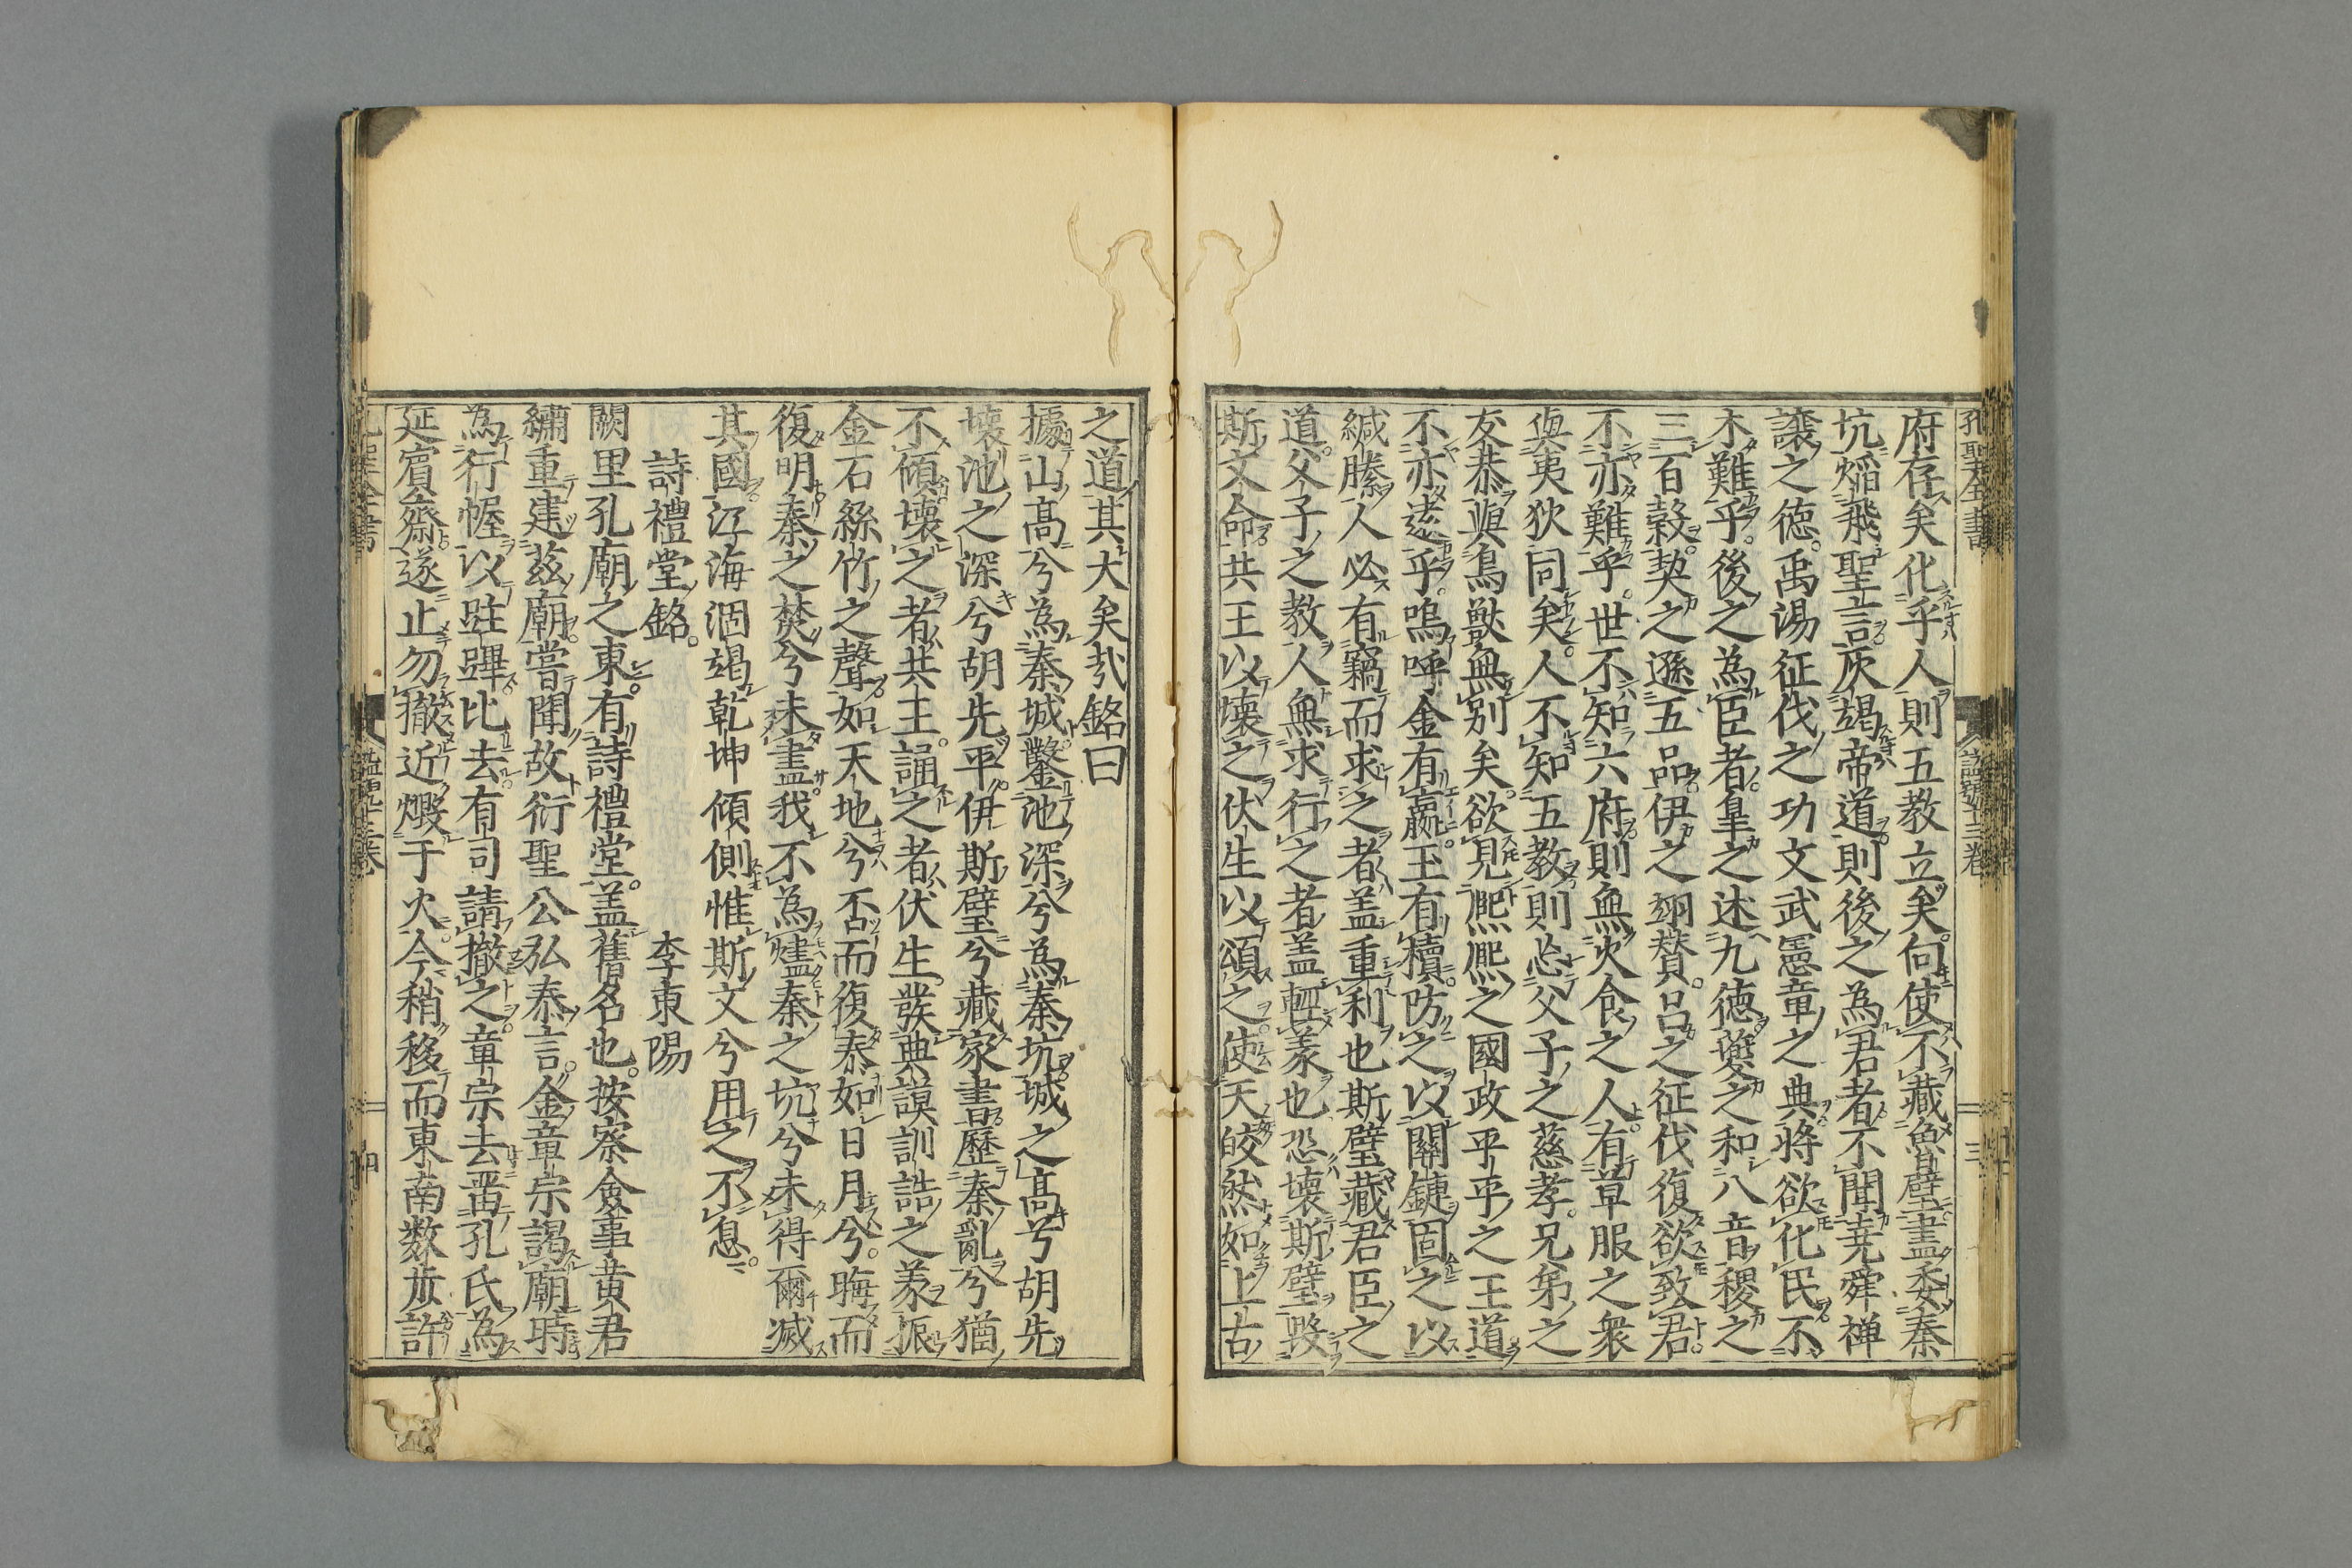 孔聖全書
府存矣化乎人則五教立矣向使不藏魯壁盡委秦
坑焰飛聖言灰竭帝道則後之為君者不聞堯舜禅
譲之徳禹湯征伐之功文武憲章之典將欲化民不
木難乎後之為臣者皐之述九徳夔之和八音稷之
三百穀契之遜五品伊之翊賛呂之征伐復欲致君
不亦難乎世不知六府則無火食之人有草服之衆
與夷狄同矣人不知五教則忘父子之慈孝兄弟之
友恭與鳥獣無别矣欲見熈熈之國政平平之王道
不亦遠乎嗚呼金有嬴玉有櫝防之以關鍵固之以
緘縢人必有竊而求之者盖重利也斯壁藏君臣之
道父子之教人無求行之者盖輕義也恐壊斯壁毀
斯文命共王以壊之伏生以頌之使天皎然如上古
之道其大矣哉銘曰
據山高兮為秦城鑿池深兮為秦坑城之高兮胡先
壊池之深兮胡先平伊斯壁兮藏家書歷秦亂兮猶
不傾壊之者共王誦之者伏生發典謨訓誥之義振
金石絲竹之聲如天地兮否而復泰如日月兮晦而
復明秦之焚兮未盡我不為燼秦之坑兮未得爾滅
其國江海涸竭乾坤傾側惟斯文兮用之不息
詩禮堂銘 李東陽
闕里孔廟之東有詩禮堂盖舊名也按察僉事黄君
繡重建茲廟嘗聞故衍聖公弘泰言金章宗謁廟時
為行幄以駐蹕比去有司請撤之章宗去畱孔氏為
延賓齋遂止勿撤近燬于火今稍移而東南数步許